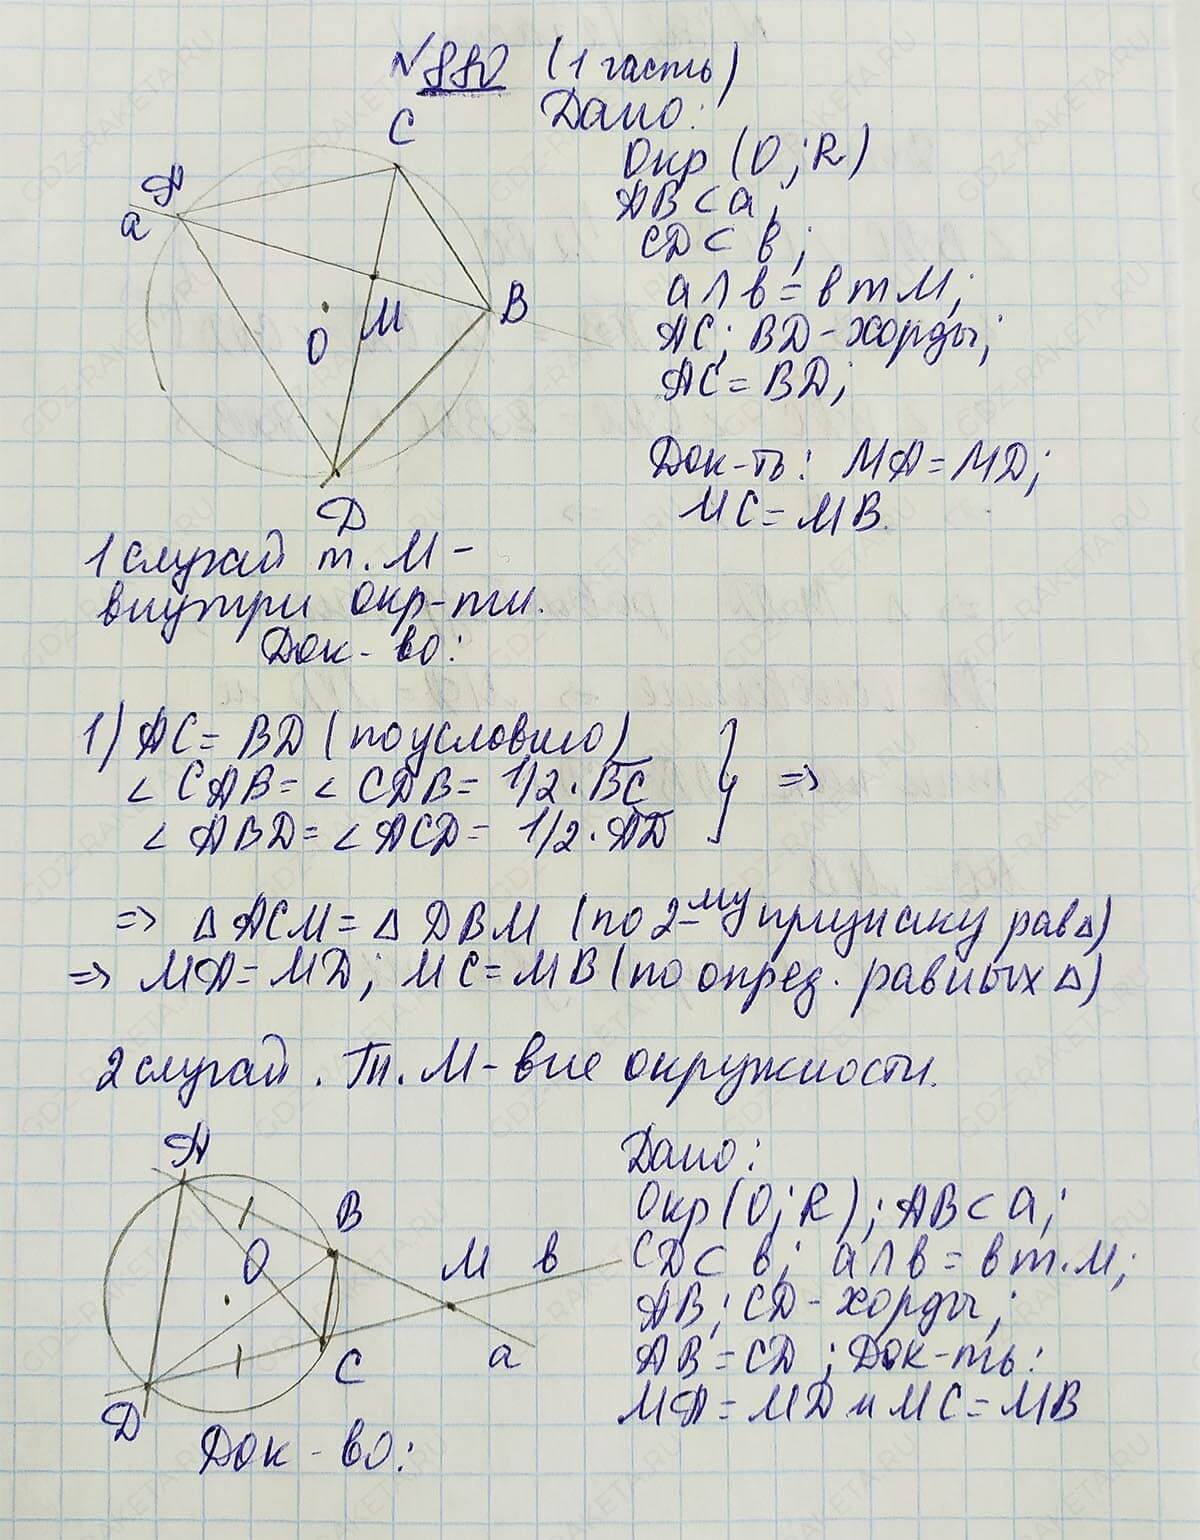 №880 (1 часть)
C
A
a
M
B
O
D
Дано:
Окр (O; R)
AB ⊂ a;
CD ⊂ в;
a ∩ в = в т M;
AC; BD - хорды;
AC = BD;
Док-ть: MA = MD;
MC = MB.
1 случай т. M -
внутри окр-ти.
Док-во:
1) AC = BD (по условию)
∠ CAB = ∠ CDB = 1/2 · BC
∠ ABD = ∠ ACD = 1/2 · AD } =>
=> △ ACM = △ DBM (по 2-му признаку рав△)
=> MA = MD; MC = MB (по опред. равных △)
2 случай. Т. M - вне окружности.
A
B
O
M в
C
a
D
Дано:
Окр (O; R); AB ⊂ a;
CD ⊂ в; a ∩ в = в т. M;
AB; CD - хорды;
AB = CD; Док-ть:
MA = MD и MC = MB
Док-во: